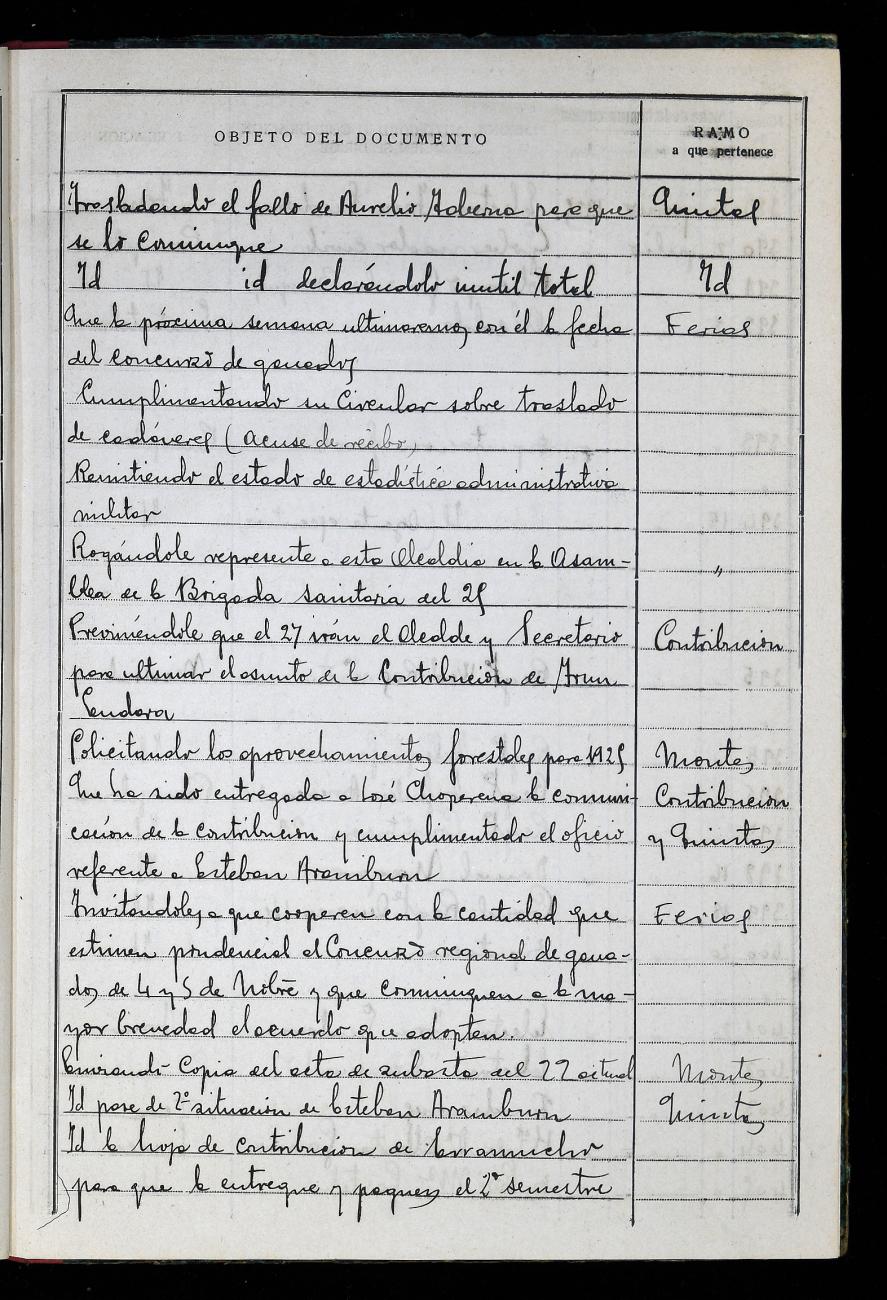 OBJETO DEL DOCUMENTO
RAMO
a que pertenece
Trasladando el fallo de Aurelio Taberna para que Quintas
se lo comunique
Id id declarándolo inutil total Id
Que la próxima semana ultimaremos con él la fecha Ferias
del concurso de ganados
Cumplimentando su Circular sobre traslado
de cadáveres (acuse de recibo)
Remitiendo el estado de estadística administrativa
militar
Rogándole represente a esta Alcaldia en la Asam-
blea de la Brigada sanitaria del 25 "
Previniéndole que el 27 irán el Alcalde y Secretario Contribucion
para ultimar el asunto de la Contribución de
Endara
Solicitando los aprovechamientos forestales para 1925 Montes
Que ha sido entregada a José Choperena la comuni- Contribucion
cación de la contribucion y cumplimentado el oficio y Quintas
referente a Esteban Aramburu
Invitandoles a que cooperen con la cantidad que Ferias
estimen prudencial al Concurso regional de gana-
dos de 4 y 5 de Nobre y que comuniquen a la ma-
yor brevedad el acuerdo que adopten.
Enviando Copia del acta de subasta del 22 actual Montes
Id pase de 2ª situación de Esteban Aramburu Quintas
Id la hoja de contribucion de
para que la entregue y paguen el 2º semestre